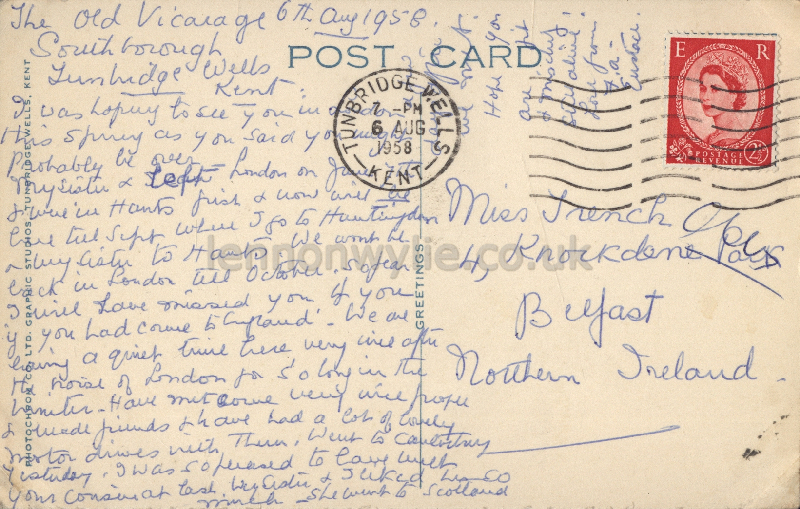 The Old Vicarage 6th Aug 1958.
Southborough
Tunbridge Wells
Kent.
I was hoping to see you in
this spring as you said you might
probably be over
My sister & I left London on June
& were in Hants first & now will be
here till Sept where I go to Huntingdon
& my sister to Hants. We wont be
back in London till October. So fear
I will have missed you if you
you had come to England. We are
having a quiet time here, very nice after
the noise of London for so long in the
Winter. Have met some very nice people
& made friends & have had a lot of lovely
motor drives with them. Went to Canterbury
yesterday. I was so pleased to have met
your Cousin at last. My sister & I liked her so
much - she went to Scotland
Hope you
are
Love from
POST CARD
TUNBRIDGE WELLS
7 - PM
6 AUG
1958
KENT
E R
POSTAGE
REVENUE
2½
Miss French
4, Knockdene Park
Belfast
Northern Ireland.
GREETINGS
PHOTOCHROM CO. LTD. GRAPHIC STUDIOS, TUNBRIDGE WELLS, KENT
lennonwylie.co.uk